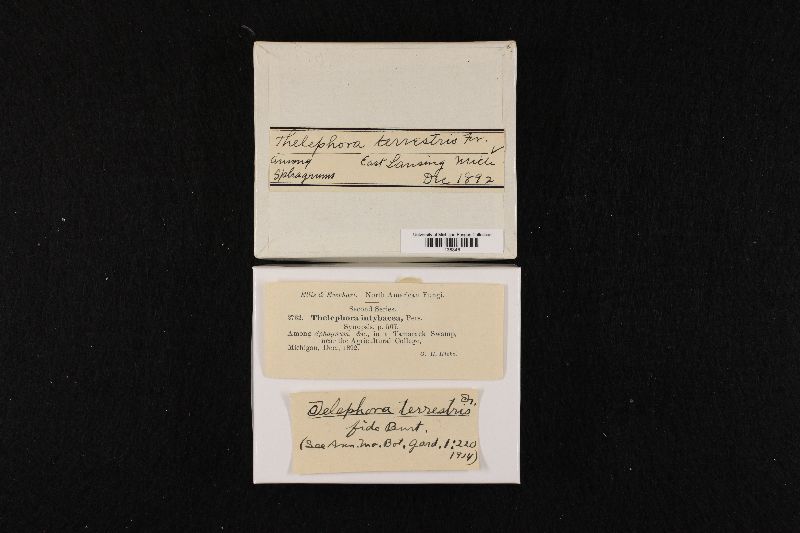 Thelephora terrestris Fr.
among East Lansing Mich
Sphagnums Dec 1892
University of Michigan Fungus Collection
Ellis & Everhart. North American Fungi.
Second Series.
2732. Thelephora intybacea, Pers.
Synopsis, p. 567.
Among Sphagnum, &c., in a Tamarack Swamp,
near the Agricultural College,
Michigan, Dec., 1892.
G. H. Hicks.
Telephora terrestris
fide Burt.
(See Ann. Mo. Bot. Gard. 1:220
1914)